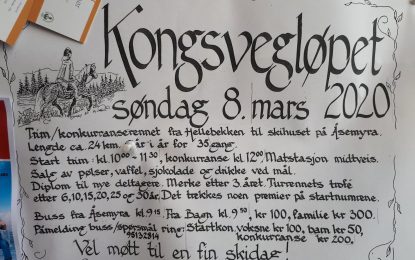 Kongsvegløpet
søndag 8. mars 2020
Trim/konkurranserennet fra Hellebekken til skihuset på Åsemyra.
Lengde ca. 24 km. år i år for 35 gang.
Start trim: kl. 10⁰⁰ - 11³⁰, konkuranse kl 12⁰⁰. Matstasjon midtveis.
Salg av pølser, vaffel, sjokolade og drikke ved mål.
Diplom til nye deltagere. Merke etter 3. året. Turrennets trofé
etter 6, 10, 15, 20, 25 og 30 år. Det trekkes noen premier på startnumrene.
Buss fra Åsemyra kl 9¹⁵. Fra Bagn kl 9⁵⁰, kr 100, familie kr 300.
Påmelding buss/spørsmål ring: Startkon. voksne kr 100, barn kr 50,
95132814 konkuranse kr 200,
Vel møtt til en fin skidag!